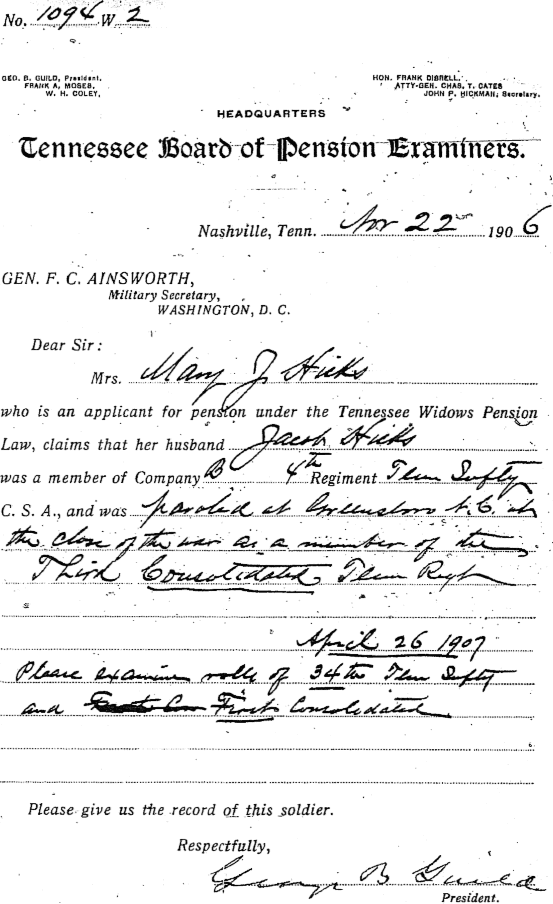 No. 1094 W 2
GEO. B. GUILD, President.
FRANK A. MOSES.
W. H. COLEY.
HON. FRANK DIBRELL.
ATTY-GEN. CHAS. T. CATES
JOHN P. HICKMAN, Secretary.
HEADQUARTERS
Tennessee Board of Pension Examiners.
Nashville, Tenn. Nov 22 1906
GEN. F. C. AINSWORTH,
Military Secretary,
WASHINGTON, D. C.
Dear Sir:
Mrs. Mary J Hicks
who is an applicant for pension under the Tennessee Widows Pension
Law, claims that her husband Jacob Hicks
was a member of Company B 4th Regiment Tenn Infty
C. S. A., and was paroled at Greensboro N.C. at
the close of the war as a member of the
Third Consolidated Tenn Regt
April 26 1907
Please examine rolls of 34th Tenn Infty
and First Consolidated
Please give us the record of this soldier.
Respectfully,
George B Guild
President.